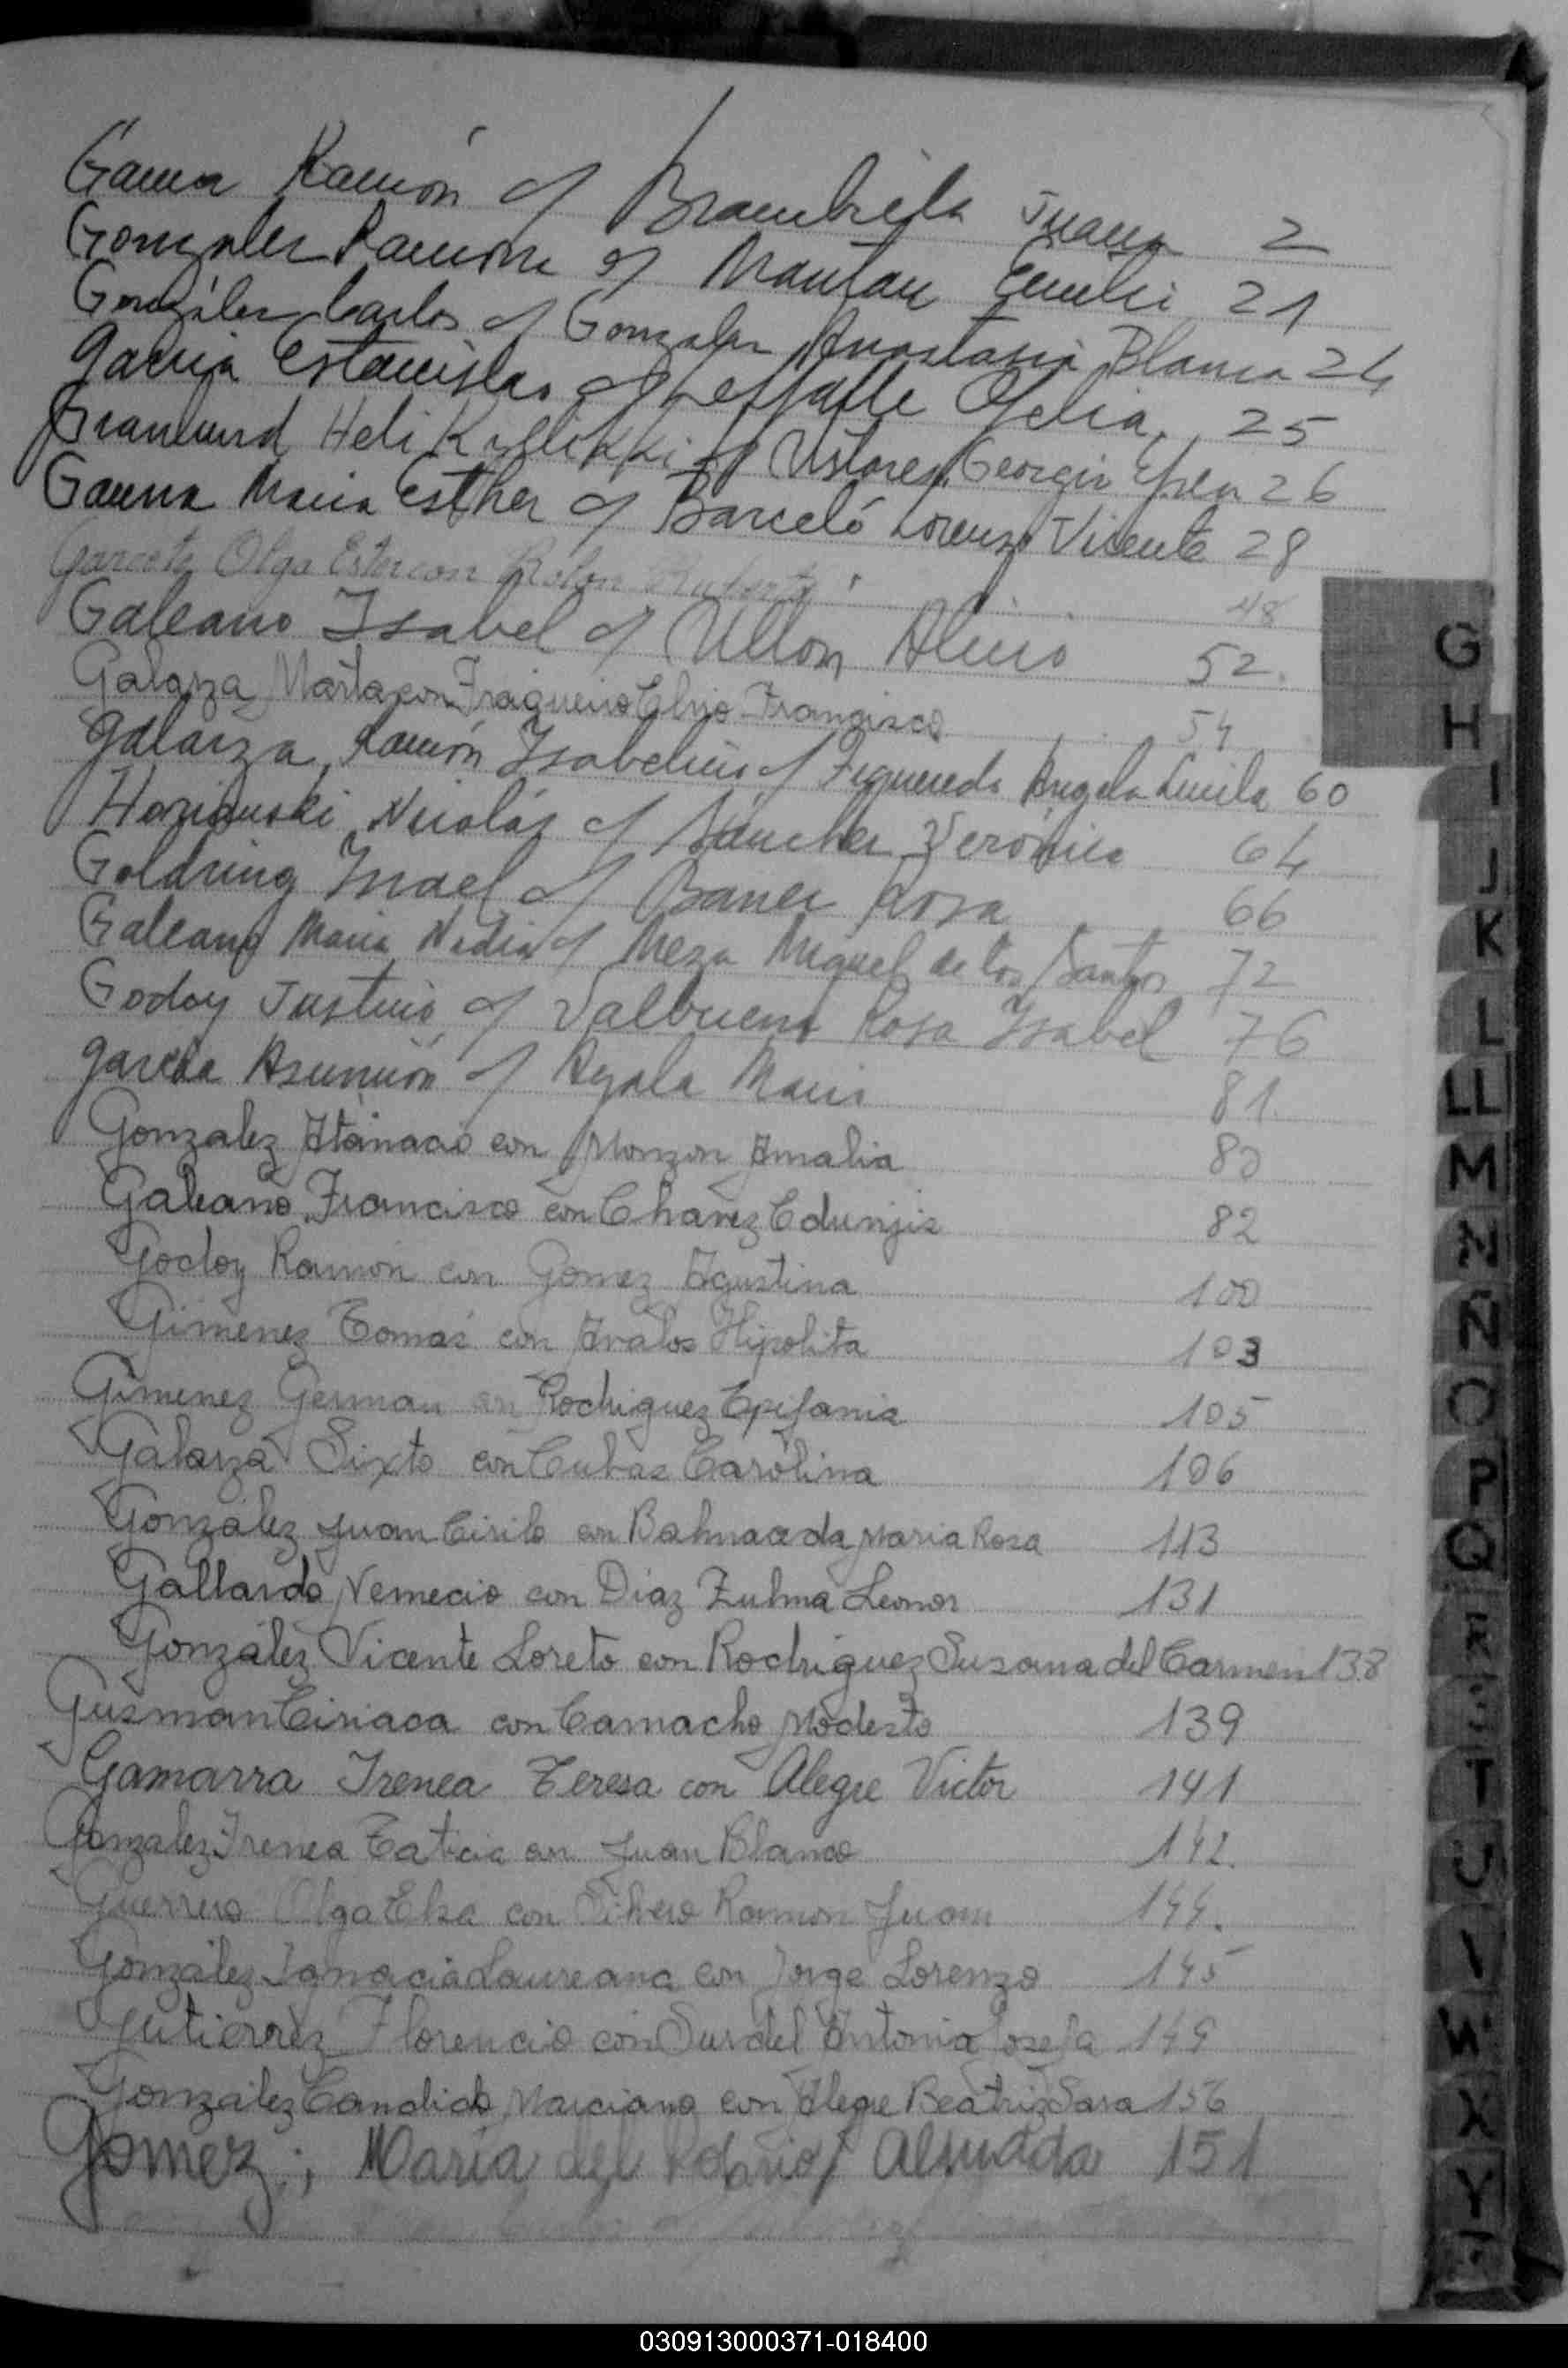 Gauna Ramón c/ Brambilla Juana 2
Gonzalez Ramona c/ 21
González Carlos c/ Gonzalez Anastasia Blanca 24
Garcia Estanislao c/ Ofelia 25
Granlund Heli Kyllikki c/ Georgio 26
Gauna Maria Esther c/ Barceló Lorenzo Vicente 28
Garcete Olga Ester con Rolon 48
Galeano Isabel c/ Ullon 52.
Galarza Marta con Fragueiro Elvio Francisco 54
Galarza, Ramón Isabelino c/ Figueredo Angela Lucila 60
Nicolás c/ Sánchez Verónica 64
Goldring Israel c/ Rosa 66
Galeano Maria Nadia c/ Meza Miguel de los Santos 72
Godoy Justino c/ Valbuena Rosa Isabel 76
Garcia Asunción c/ Ayala Maria 81
Gonzalez Atanacio con Monzon Amalia 80
Galeano Francisco con Chavez 82
Godoy Ramón con Gomez Agustina 100
Gimenez Tomás con Avalos Hipolita 103
Gimenez German con Rodriguez Epifania 105
Galarza Sixto con Cubas Carolina 106
González Juan Cirilo con Balmaceda Maria Rosa 113
Gallardo Nemecio con Diaz Zulma Leonor 131
González Vicente Loreto con Rodriguez Susana del Carmen 138
Gusman Ciriaca con Camacho Modesto 139
Gamarra Irenea Teresa con Alegre Victor 141
Gonzalez Irenea con Juan Blanco 142.
Guerrero Olga Elsa con Ramon Juan 144.
González Ignacia Laureana con Jorge Lorenzo 145
Gutierrez Florencio con Antonia Josefa 149
González Candido Marciano con Alegre Beatriz Sara 156
Gomez; Maria del Rosario c/ Almada 151
G
H
I
J
K
L
LL
M
N
Ñ
O
P
Q
R
S
T
U
V
W
X
Y
030913000371-018400